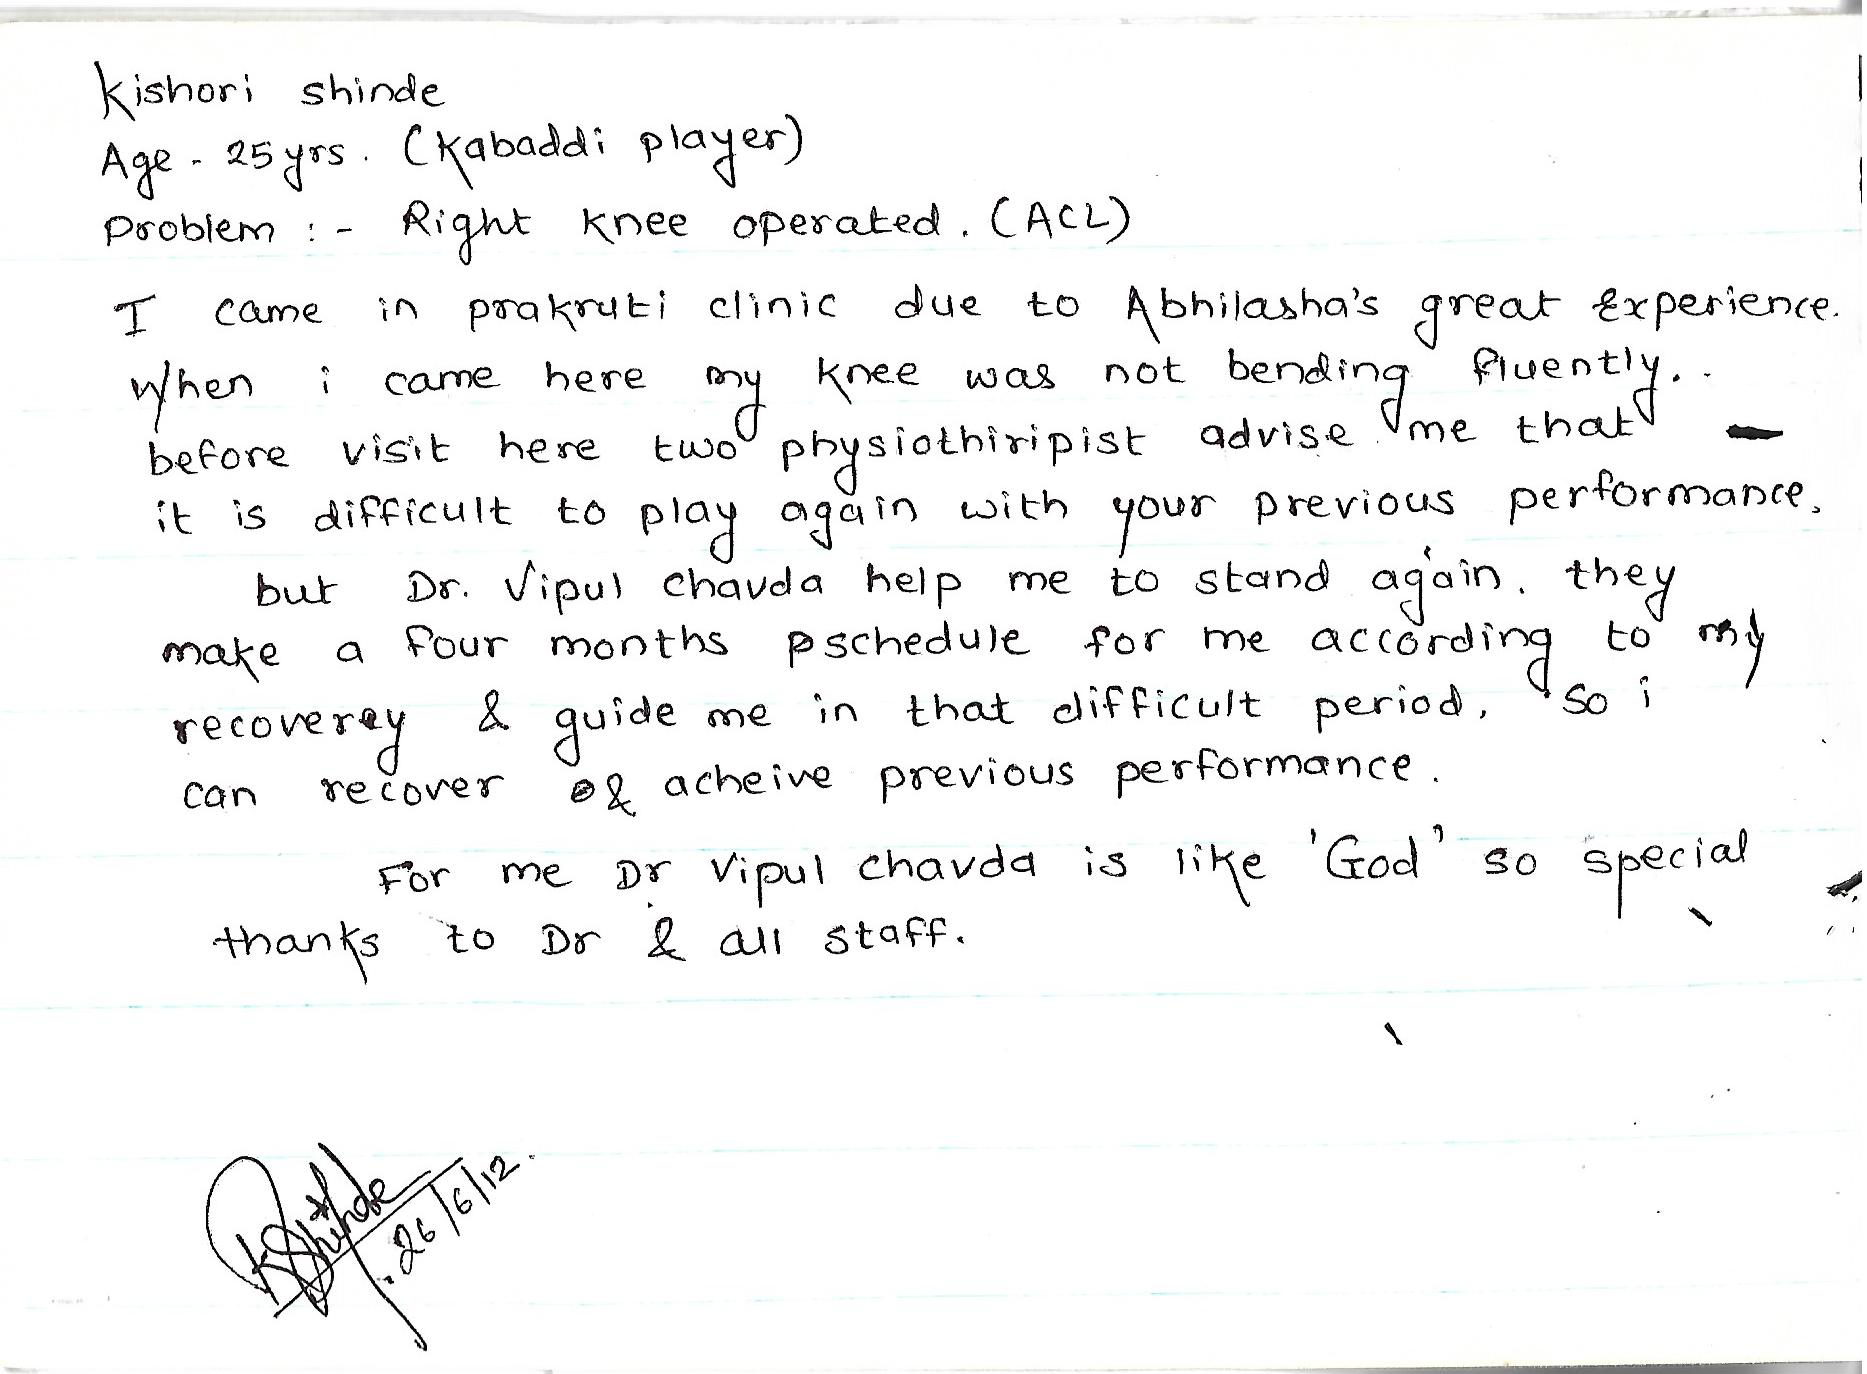 Kishori shinde
Age - 25 yrs. (Kabaddi player)
Problem :- Right knee operated. (ACL)
I came in prakruti clinic due to Abhilasha's great Experience.
When i came here my knee was not bending fluently..
before visit here two physiothiripist advise me that -
it is difficult to play again with your previous performance.
but Dr. Vipul chavda help me to stand again. they
make a four months pschedule for me according to my
recoverey & guide me in that difficult period, so i
can recover & acheive previous performance.
For me Dr Vipul chavda is like 'God' so special
thanks to Dr & all staff.
KShinde
26/6/12.